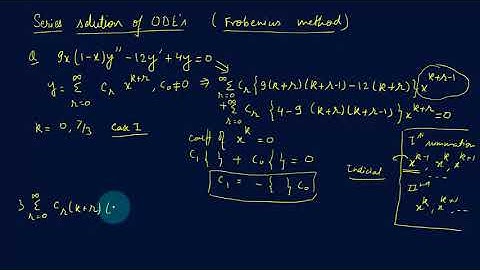 Series solution of ODE's (Frobenius method)
Q 9x(1-x)y'' - 12y' + 4y = 0
y = ∞ Σ r=0 c_r x^{k+r}, c_0 ≠ 0 ⇒ ∞ Σ r=0 c_r {9(k+r)(k+r-1) - 12(k+r)} x^{k+r-1}
+ ∞ Σ r=0 c_r {4 - 9 (k+r)(k+r-1)} x^{k+r} = 0
k = 0, 7/3 Case I
coeff of x^k
c_1 { } + c_0 { } = 0
c_1 = - { } c_0
Indicial
I^st summation
x^{k-1}, x^k, x^{k+1}
....
II^nd
x^k, x^{k+1} ....
3 ∞ Σ r=0 c_r (k+r) (